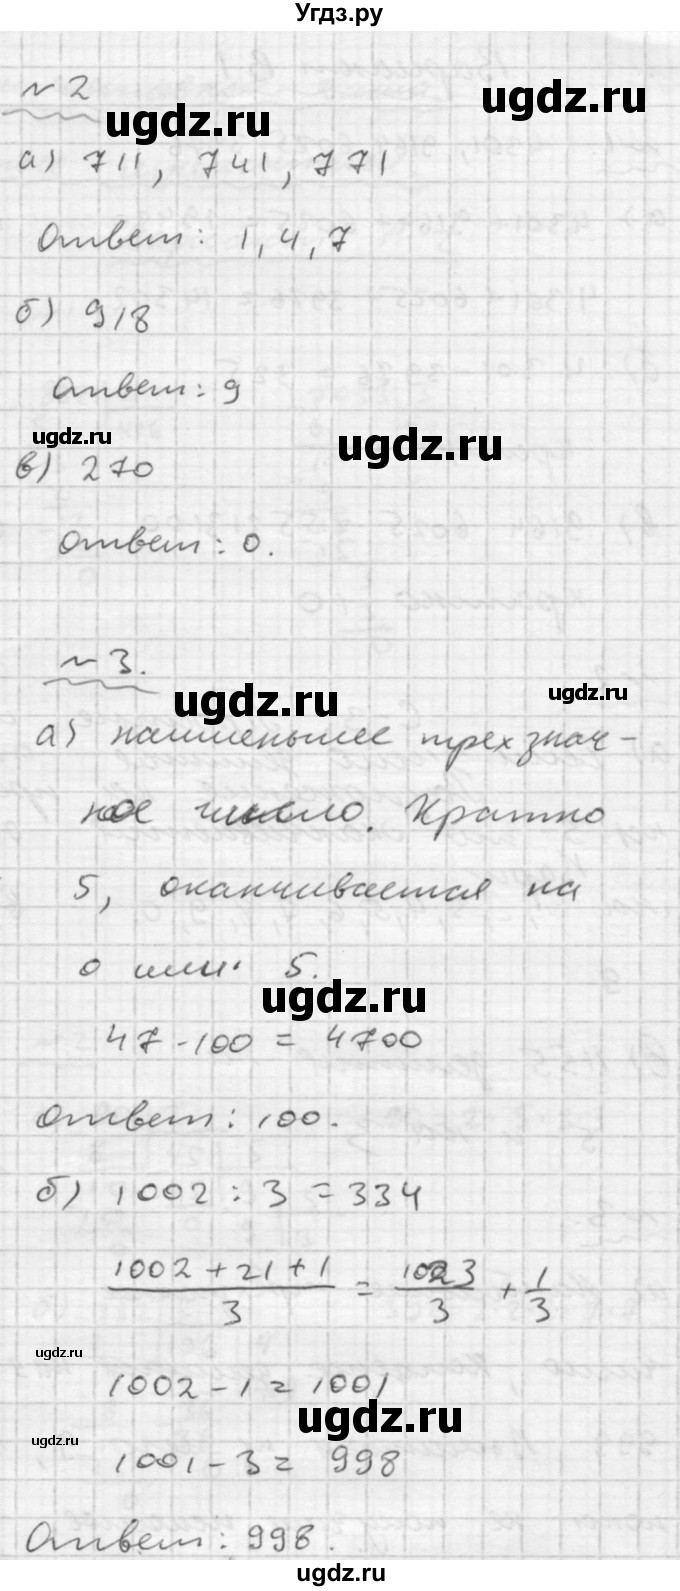 Угдз.ру
№ 2
ugdz.ru
ugdz.ru
а) 711, 741, 771
Ответ: 1, 4, 7
б) 918
Ответ: 9
ugdz.ru
ugdz.ru
в) 270
Ответ: 0.
№ 3.
ugdz.ru
ugdz.ru
а) наименьшее трехзнач-
ное число. Кратно
5, оканчивается на
0 или 5.
ugdz.ru
47 · 100 = 4700
Ответ: 100.
б) 1002 : 3 = 334
1002 + 21 + 1 / 3 = 1023 / 3 + 1 / 3
ugdz.ru
1002 - 1 = 1001
ugdz.ru
ugdz.ru
1001 - 3 = 998
Ответ: 998.
ugdz.ru